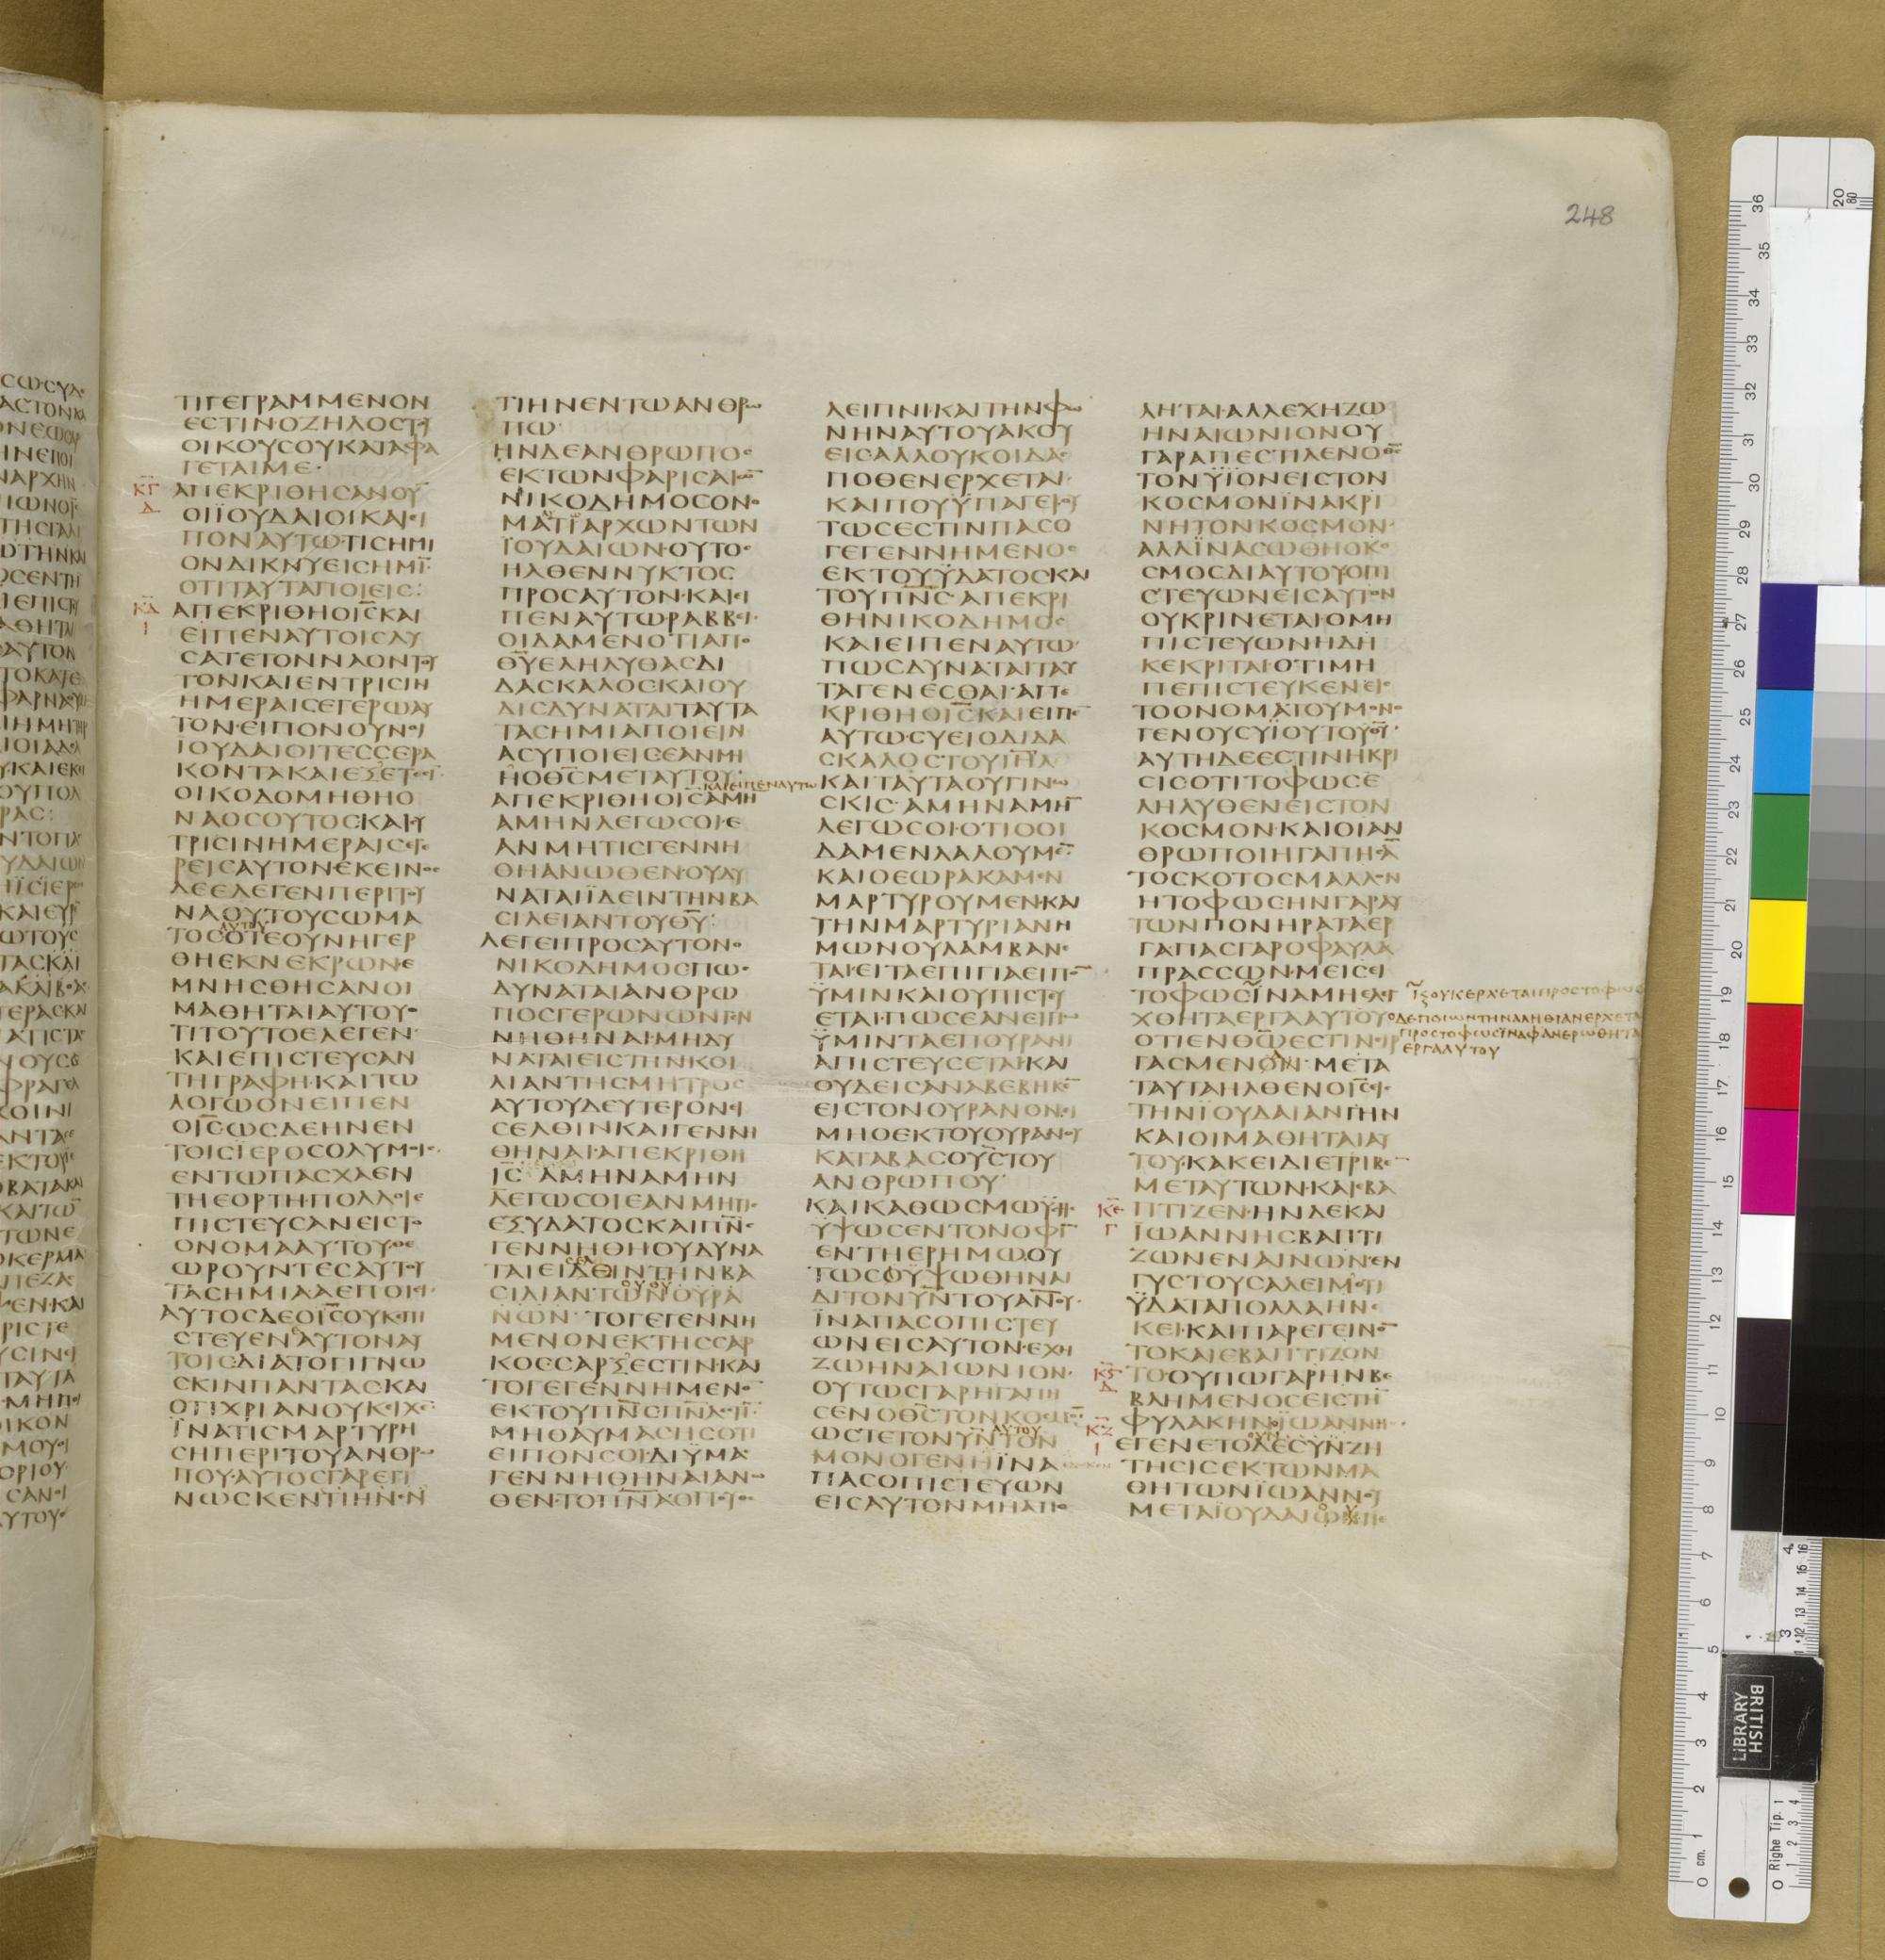 248
ΤΙΓΕΓΡΑΜΜΕΝΟΝ
ΕϹΤΙΝΟΖΗΛΟϹΤΟΥ
ΟΙΚΟΥϹΟΥΚΑΤΑΦΑ
ΓΕΤΑΙΜΕ·
ΚΓ ΑΠΕΚΡΙΘΗϹΑΝΟΥ̅
Δ ΟΙΪΟΥΔΑΙΟΙΚΑΙΕΙ
ΠΟΝΑΥΤΩ·ΤΙϹΗΜΙ
ΟΝΔΙΚΝΥΕΙϹΗΜΙ̅·
ΟΤΙΤΑΥΤΑΠΟΙΕΙϹ:
ΚΔ ΑΠΕΚΡΙΘΗΟΙ̅Ϲ̅ΚΑΙ
Ι ΕΙΠΕΝΑΥΤΟΙϹΛΥ
ϹΑΤΕΤΟΝΝΑΟΝΤΟΥ
ΤΟΝΚΑΙΕΝΤΡΙϹΙΗ
ΗΜΕΡΑΙϹΕΓΕΡΩΑΥ
ΤΟΝ·ΕΙΠΟΝΟΥΝΟΙ
ΪΟΥΔΑΙΟΙΤΕϹϹΕΡΑ
ΚΟΝΤΑΚΑΙΕΞΕΤΕϹΙ̅
ΟΙΚΟΔΟΜΗΘΗΟ
ΝΑΟϹΟΥΤΟϹΚΑΙϹΥ
ΤΡΙϹΙΝΗΜΕΡΑΙϹΕΓΕ
ΡΕΙϹΑΥΤΟΝΕΚΕΙΝΟϹ
ΔΕΕΛΕΓΕΝΠΕΡΙΤΟΥ
ΝΑΟΥΤΟΥϹΩΜΑ
ΑΥΤΟΥ
ΤΟϹΟΤΕΟΥΝΗΓΕΡ
ΘΗΕΚΝΕΚΡΩΝΕ
ΜΝΗϹΘΗϹΑΝΟΙ
ΜΑΘΗΤΑΙΑΥΤΟΥΟ
ΤΙΤΟΥΤΟΕΛΕΓΕΝ
ΚΑΙΕΠΙϹΤΕΥϹΑΝ
ΤΗΓΡΑΦΗ·ΚΑΙΤΩ
ΛΟΓΩΟΝΕΙΠΕΝ
ΟΙ̅Ϲ̅ΩϹΔΕΗΝΕΝ
ΤΟΙϹΪΕΡΟϹΟΛΥΜΟΙϹ
ΕΝΤΩΠΑϹΧΑΕΝ
ΤΗΕΟΡΤΗ·ΠΟΛΛΟΙΕ
ΠΙϹΤΕΥϹΑΝΕΙϹΤΟ
ΟΝΟΜΑΑΥΤΟΥΘΕ
ΩΡΟΥΝΤΕϹΑΥΤΟΥ
ΤΑϹΗΜΙΑΑΕΠΟΙΕΙ·
ΑΥΤΟϹΔΕΟΙ̅Ϲ̅ΟΥΚΕΠΙ
ϹΤΕΥΕΝΑΥΤΟΝΑΥ
ΤΟΙϹΔΙΑΤΟΓΙΓΝΩ
ϹΚΙΝΠΑΝΤΑϹΚΑΙ
ΟΤΙΧΡΙΑΝΟΥΚΕΙΧΕ
ΪΝΑΤΙϹΜΑΡΤΥΡΗ
ϹΗΠΕΡΙΤΟΥΑΝΘΡΩ
ΠΟΥ·ΑΥΤΟϹΓΑΡΕΓΙ
ΝΩϹΚΕΝΤΙΗΝΕΝ
ΤΙΗΝΕΝΤΩΑΝΘΡΩ
ΠΩ
ΗΝΔΕΑΝΘΡΩΠΟϹ
ΕΚΤΩΝΦΑΡΙϹΑΙΩ̅
ΝΙΚΟΔΗΜΟϹΟΝΟ
ΜΑΤΙΑΡΧΩΝΤΩΝ
ΪΟΥΔΑΙΩΝ·ΟΥΤΟϹ
ΗΛΘΕΝΝΥΚΤΟϹ
ΠΡΟϹΑΥΤΟΝ·ΚΑΙΕΙ
ΠΕΝΑΥΤΩΡΑΒΒΕΙ·
ΟΙΔΑΜΕΝΟΤΙΑΠΟ
Θ̅Υ̅ΕΛΗΛΥΘΑϹΔΙ
ΔΑϹΚΑΛΟϹ·ΚΑΙΟΥ
ΔΙϹΔΥΝΑΤΑΙΤΑΥΤΑ
ΤΑϹΗΜΙΑΠΟΙΕΙΝ
ΑϹΥΠΟΙΕΙϹΕΑΝΜΙ
ΗΟΘ̅Ϲ̅ΜΕΤΑΥΤΟΥ:
ΚΑΙΕΙΠΕΝΑΥΤΩ
ΑΠΕΚΡΙΘΗΟΙ̅Ϲ̅ΑΜΗ
ΑΜΗΝΛΕΓΩϹΟΙ·Ε
ΑΝΜΗΤΙϹΓΕΝΝΗ
ΘΗΑΝΩΘΕΝ·ΟΥΔΥ
ΝΑΤΑΙΪΔΕΙΝΤΗΝΒΑ
ϹΙΛΕΙΑΝΤΟΥΘ̅Υ̅:
ΛΕΓΕΙΠΡΟϹΑΥΤΟΝΟ
ΝΙΚΟΔΗΜΟϹΠΩϹ
ΔΥΝΑΤΑΙΑΝΘΡΩ
ΠΟϹΓΕΡΩΝΩΝΓΕΝ
ΝΗΘΗΝΑΙ·ΜΗΔΥ
ΝΑΤΑΙΕΙϹΤΗΝΚΟΙ
ΛΙΑΝΤΗϹΜΗΤΡΟϹ
ΑΥΤΟΥΔΕΥΤΕΡΟΝΕΙ
ϹΕΛΘΙΝΚΑΙΓΕΝΝΗ
ΘΗΝΑΙ·ΑΠΕΚΡΙΘΗ
Ι̅Ϲ̅ ΑΜΗΝΑΜΗΝ
ΛΕΓΩϹΟΙΕΑΝΜΗΤΙϹ
ΕΞΥΔΑΤΟϹΚΑΙΠ̅Ν̅Ϲ̅
ΓΕΝΝΗΘΗΟΥΔΥΝΑ
ΤΑΙΕΙΔΕΙΝΤΗΝΒΑ
ϹΙΛΙΑΝΤΩΝΟΥΡΑ
ΝΩΝ· ΤΟΓΕΓΕΝΝΗ
ΜΕΝΟΝΕΚΤΗϹϹΑΡ
ΚΟϹϹΑΡΞΕϹΤΙΝ·ΚΑΙ
ΤΟΓΕΓΕΝΝΗΜΕΝΟ̅
ΕΚΤΟΥΠ̅Ν̅Ϲ̅Π̅Ν̅Α̅ΕϹΤΙ̅
ΜΗΘΑΥΜΑϹΗϹΟΤΙ
ΕΙΠΟΝϹΟΙ·ΔΙΫΜΑϹ
ΓΕΝΝΗΘΗΝΑΙΑΝΩ
ΘΕΝ·ΤΟΠ̅Ν̅Α̅ΟΠΟΥΘΕ
ΛΕΙΠΝΙ·ΚΑΙΤΗΝΦΩ
ΝΗΝΑΥΤΟΥΑΚΟΥ
ΕΙϹΑΛΛΟΥΚΟΙΔΑϹ
ΠΟΘΕΝΕΡΧΕΤΑΙ·
ΚΑΙΠΟΥΫΠΑΓΕΙΟΥ
ΤΩϹΕϹΤΙΝΠΑϹΟ
ΓΕΓΕΝΝΗΜΕΝΟϹ
ΕΚΤΟΥΫΔΑΤΟϹΚΑΙ
ΤΟΥΠ̅Ν̅Ϲ̅·ΑΠΕΚΡΙ
ΘΗΝΙΚΟΔΗΜΟϹ
ΚΑΙΕΙΠΕΝΑΥΤΩ·
ΠΩϹΔΥΝΑΤΑΙΤΑΥ
ΤΑΓΕΝΕϹΘΑΙ·ΑΠΕ
ΚΡΙΘΗΟΙ̅Ϲ̅ΚΑΙΕΙΠΕ̅
ΑΥΤΩ·ϹΥΕΙΟΔΙΔΑ
ϹΚΑΛΟϹΤΟΥΙ̅Η̅Λ̅
ΚΑΙΤΑΥΤΑΟΥΓΙΝΩ
ϹΚΙϹ·ΑΜΗΝΑΜΗ̅
ΛΕΓΩϹΟΙ·ΟΤΙΟΟΙ
ΔΑΜΕΝΛΑΛΟΥΜΕ̅
ΚΑΙΟΕΩΡΑΚΑΜΕΝ
ΜΑΡΤΥΡΟΥΜΕΝ·ΚΑΙ
ΤΗΝΜΑΡΤΥΡΙΑΝΗ
ΜΩΝΟΥΛΑΜΒΑΝΕ
ΤΑΙ·ΕΙΤΑΕΠΙΓΙΑΕΙΠΟ̅
ΫΜΙΝΚΑΙΟΥΠΙϹΤΕΥ
ΕΤΑΙ·ΠΩϹΕΑΝΕΙΠΩ
ΫΜΙΝΤΑΕΠΟΥΡΑΝΙ
ΑΠΙϹΤΕΥϹΕΤΑΙ·ΚΑΙ
ΟΥΔΕΙϹΑΝΑΒΕΒΗΚΕ̅
ΕΙϹΤΟΝΟΥΡΑΝΟΝΕΙ
ΜΗΟΕΚΤΟΥΟΥΡΑΝΟΥ
ΚΑΤΑΒΑϹΟΥ̅Ϲ̅ΤΟΥ
ΑΝΘΡΩΠΟΥ·
ΚΑΙΚΑΘΩϹΜΩΫϹΗϹ
ΫΨΩϹΕΝΤΟΝΟΦΙ̅
ΕΝΤΗΕΡΗΜΩ·ΟΥ
ΤΩϹΟΫΨΩΘΗΝΑΙ
ΔΙΤΟΝΥ̅Ν̅ΤΟΥΑ̅Ν̅Ο̅Υ̅·
ΪΝΑΠΑϹΟΠΙϹΤΕΥ
ΩΝΕΙϹΑΥΤΟΝ·ΕΧΗ
ΖΩΗΝΑΙΩΝΙΟΝ·
ΟΥΤΩϹΓΑΡΗΓΑΠΗ
ϹΕΝΟΘ̅Ϲ̅ΤΟΝΚΟϹΜΟ̅
ΑΥΤΟΥ
ΩϹΤΕΤΟΝΥ̅Ν̅ΤΟΝ
ΜΟΝΟΓΕΝΗΪΝΑ
ΠΑϹΟΠΙϹΤΕΥΩΝ
ΕΙϹΑΥΤΟΝΜΗΑΠΟ
ΛΗΤΑΙ·ΑΛΛΕΧΗΖΩ
ΗΝΑΙΩΝΙΟΝΟΥ
ΓΑΡΑΠΕϹΤΙΛΕΝΟΘ̅Ϲ̅
ΤΟΝΫΪΟΝΕΙϹΤΟΝ
ΚΟϹΜΟΝΪΝΑΚΡΙ
ΝΗΤΟΝΚΟϹΜΟΝ·
ΑΛΛΪΝΑϹΩΘΗΟΚΟ
ϹΜΟϹΔΙΑΥΤΟΥΟΠΙ
ϹΤΕΥΩΝΕΙϹΑΥΤΟΝ
ΟΥΚΡΙΝΕΤΑΙΟΜΗ
ΠΙϹΤΕΥΩΝΗΔΗ
ΚΕΚΡΙΤΑΙ·ΟΤΙΜΗ
ΠΕΠΙϹΤΕΥΚΕΝΕΙϹ
ΤΟΟΝΟΜΑΤΟΥΜΟΝΟ
ΓΕΝΟΥϹΥΪΟΥΤΟΥΘ̅Υ̅·
ΑΥΤΗΔΕΕϹΤΙΝΗΚΡΙ
ϹΙϹΟΤΙΤΟΦΩϹΕ
ΛΗΛΥΘΕΝΕΙϹΤΟΝ
ΚΟϹΜΟΝ·ΚΑΙΟΙΑΝ
ΘΡΩΠΟΙΗΓΑΠΗϹΑ̅
ΤΟϹΚΟΤΟϹΜΑΛΛΟΝ
ΗΤΟΦΩϹΗΝΓΑΡΑΥ
ΤΩΝΠΟΝΗΡΑΤΑΕΡ
ΓΑΠΑϹΓΑΡΟΦΑΥΛΑ
ΠΡΑϹϹΩΝ·ΜΕΙϹΕΙ
ΤΟΦΩϹΪΝΑΜΗΕΛΕΓ
ΧΘΗΤΑΕΡΓΑΑΥΤΟΥ
ΟΤΙΕΝΘ̅Ω̅ΕϹΤΙΝΕΙΡ
ΓΑϹΜΕΝΟΝ· ΜΕΤΑ
ΤΑΥΤΑΗΛΘΕΝΟΙ̅Ϲ̅ΕΙϹ
ΤΗΝΪΟΥΔΑΙΑΝΓΗΝ
ΚΑΙΟΙΜΑΘΗΤΑΙΑΥ
ΤΟΥ·ΚΑΚΕΙΔΙΕΤΡΙΒΕ̅
ΜΕΤΑΥΤΩΝ·ΚΑΙΕΒΑ
ΚΕ ΠΤΙΖΕΝ·ΗΝΔΕΚΑΙ
Γ ΪΩΑΝΝΗϹΒΑΠΤΙ
ΖΩΝΕΝΑΙΝΩΝ·ΕΝ
ΓΥϹΤΟΥϹΑΛΕΙΜΟΤΙ
ΫΔΑΤΑΠΟΛΛΑΗΝΕ
ΚΕΙ·ΚΑΙΠΑΡΕΓΕΙΝΟ̅
ΤΟΚΑΙΕΒΑΠΤΙΖΟΝ
ΚϚ ΤΟ·ΟΥΠΩΓΑΡΗΝΒΕ
Δ ΒΛΗΜΕΝΟϹΕΙϹΤΗ̅
ΚΖ ΦΥΛΑΚΗΝΪΩΑΝΝΗϹ·
Ι ΕΓΕΝΕΤΟΔΕϹΥΝΖΗ
ΤΗϹΙϹΕΚΤΩΝΜΑ
ΘΗΤΩΝΪΩΑΝΝΟΥ
ΜΕΤΑΪΟΥΔΑΙΩΝΠΕ
ΞΟΥΚΕΡΧΕΤΑΙΠΡΟϹΤΟΦΩϹ
ΟΔΕΠΟΙΩΝΤΗΝΑΛΗΘΙΑΝΕΡΧΕΤΑΙ
ΠΡΟϹΤΟΦΩϹΪΝΑΦΑΝΕΡΩΘΗΤΑ
ΕΡΓΑΑΥΤΟΥ
BRITISH
LIBRARY
0 cm. 1 2 3 4 5 6 7 8 9 10 11 12 13 14 15 16 17 18 19 20 21 22 23 24 25 26 27 28 29 30 31 32 33 34 35 36
0 Righe Tip. 1 2 3 4